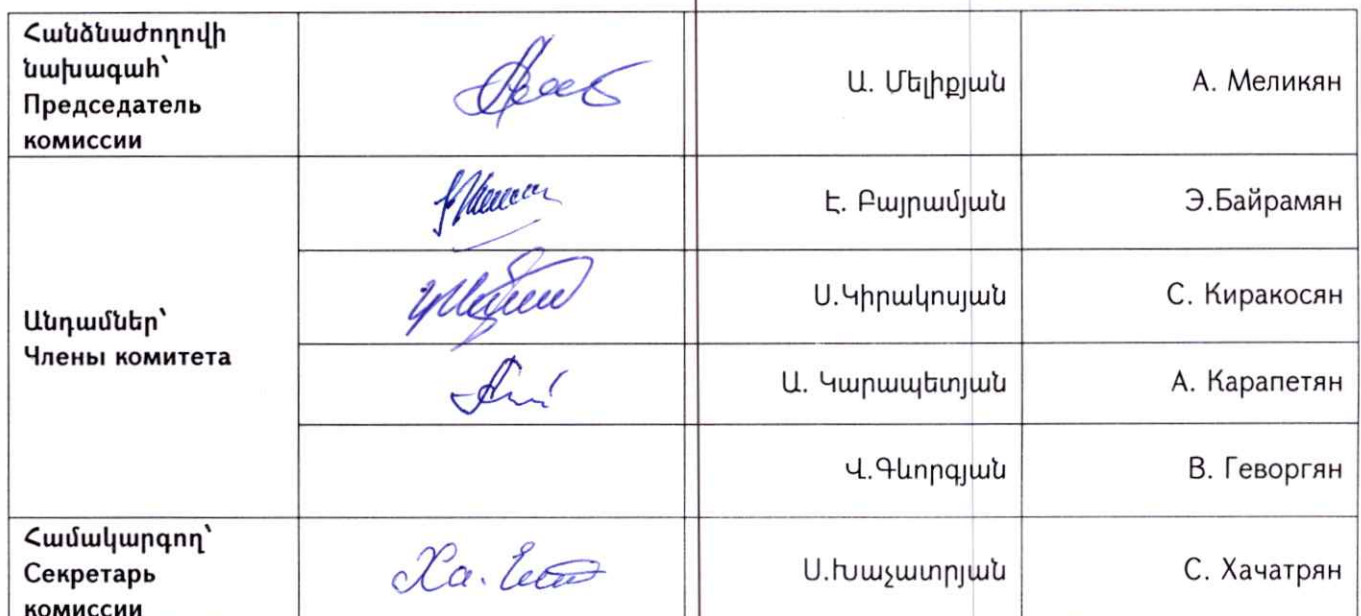 Հանձնաժողովի
նախագահ՝
Председатель
комиссии
Ա. Մելիքյան
А. Меликян
Անդամներ՝
Члены комитета
Է. Բայրամյան
Э.Байрамян
Ս.Կիրակոսյան
С. Киракосян
Ա. Կարապետյան
А. Карапетян
Վ.Գևորգյան
В. Геворгян
Համակարգող՝
Секретарь
комиссии
Ս.Խաչատրյան
С. Хачатрян